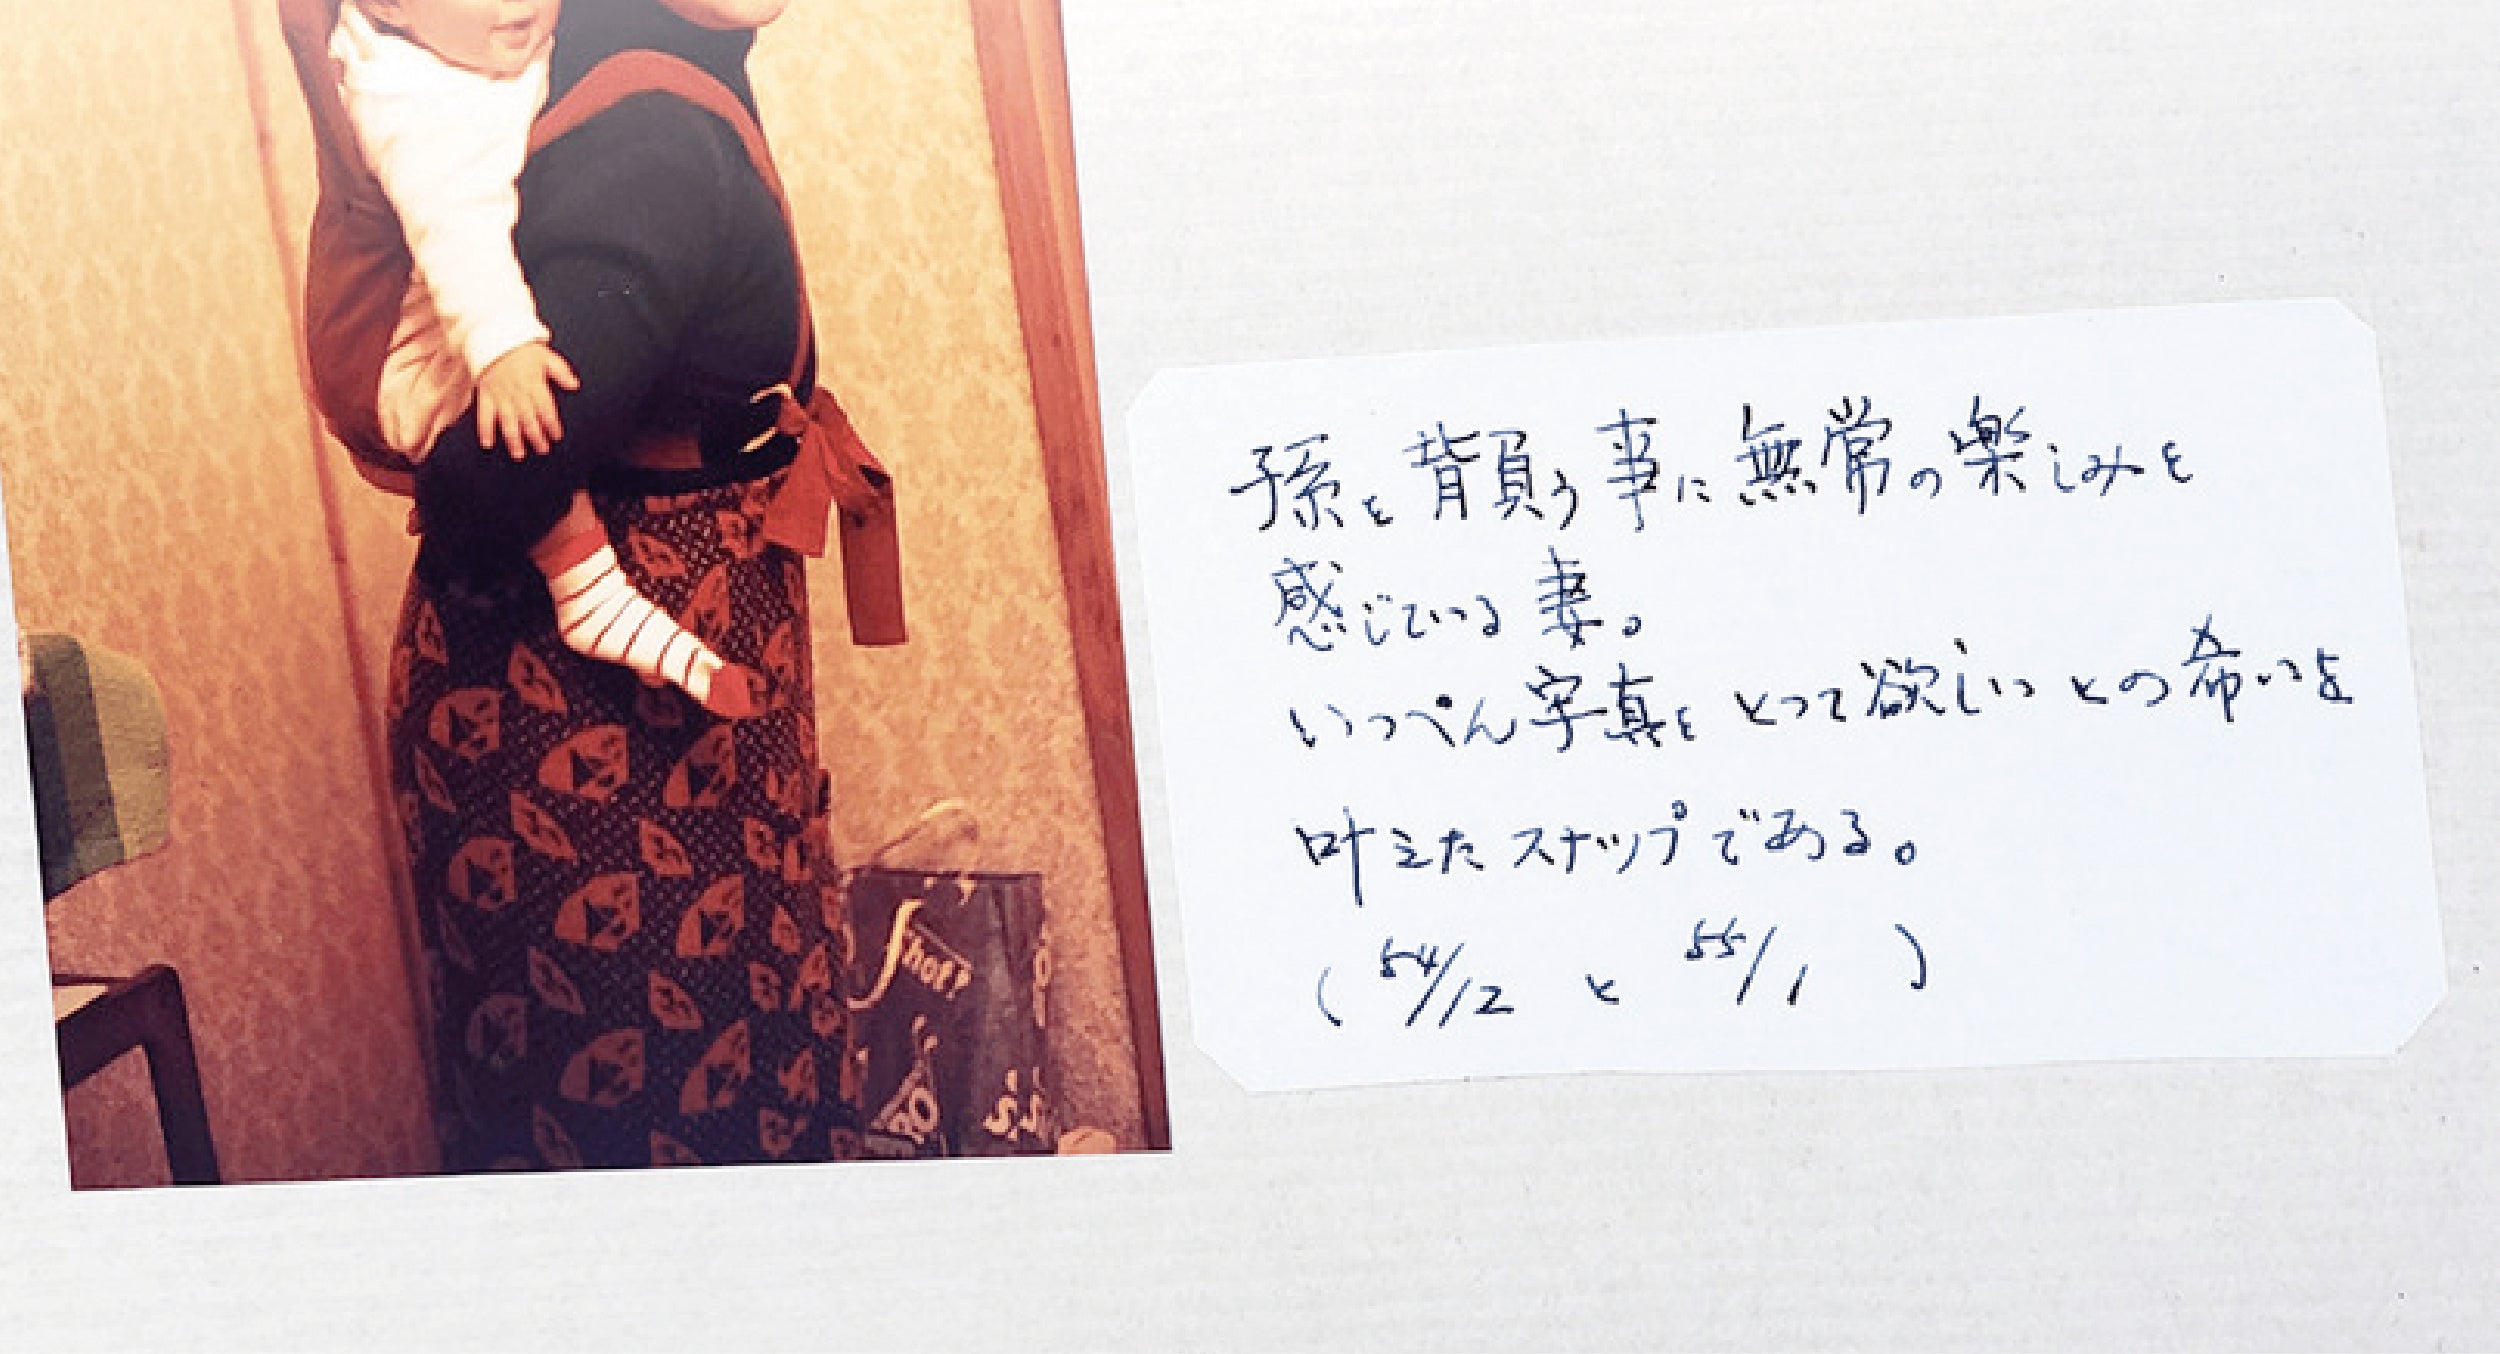 孫を背負う事に無常の楽しみを
感じている妻。
いっぺん写真をとって欲しいとの希いを
叶えたスナップである。
( 54/12 と 55/1 )